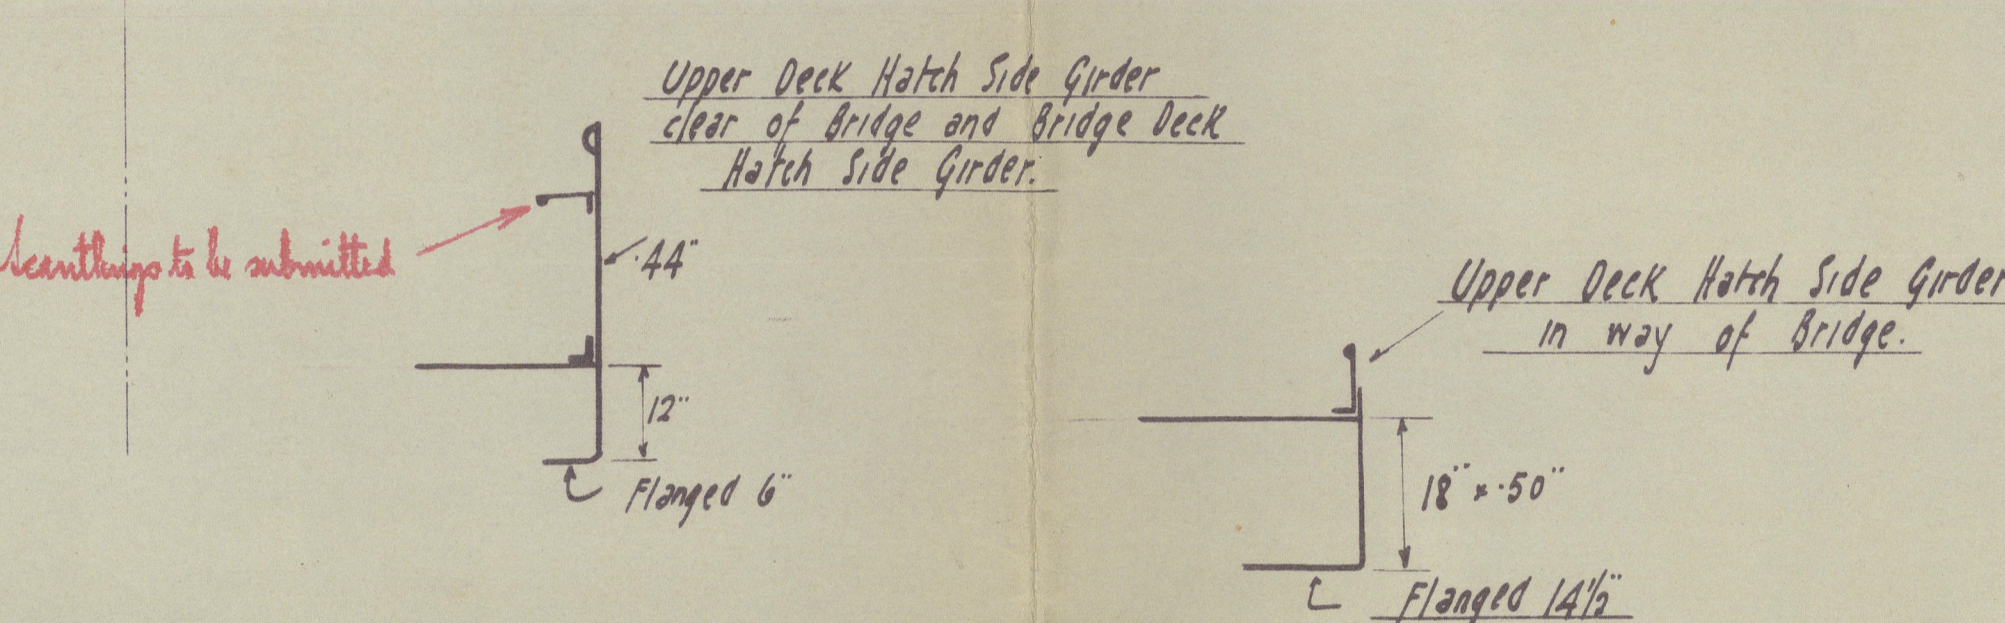 Upper Deck Hatch Side Girder
clear of Bridge and Bridge Deck
Hatch Side Girder.
Scantlings to be submitted
.44"
12"
Flanged 6"
Upper Deck Hatch Side Girder
in way of Bridge.
18" x .50"
Flanged 14½"